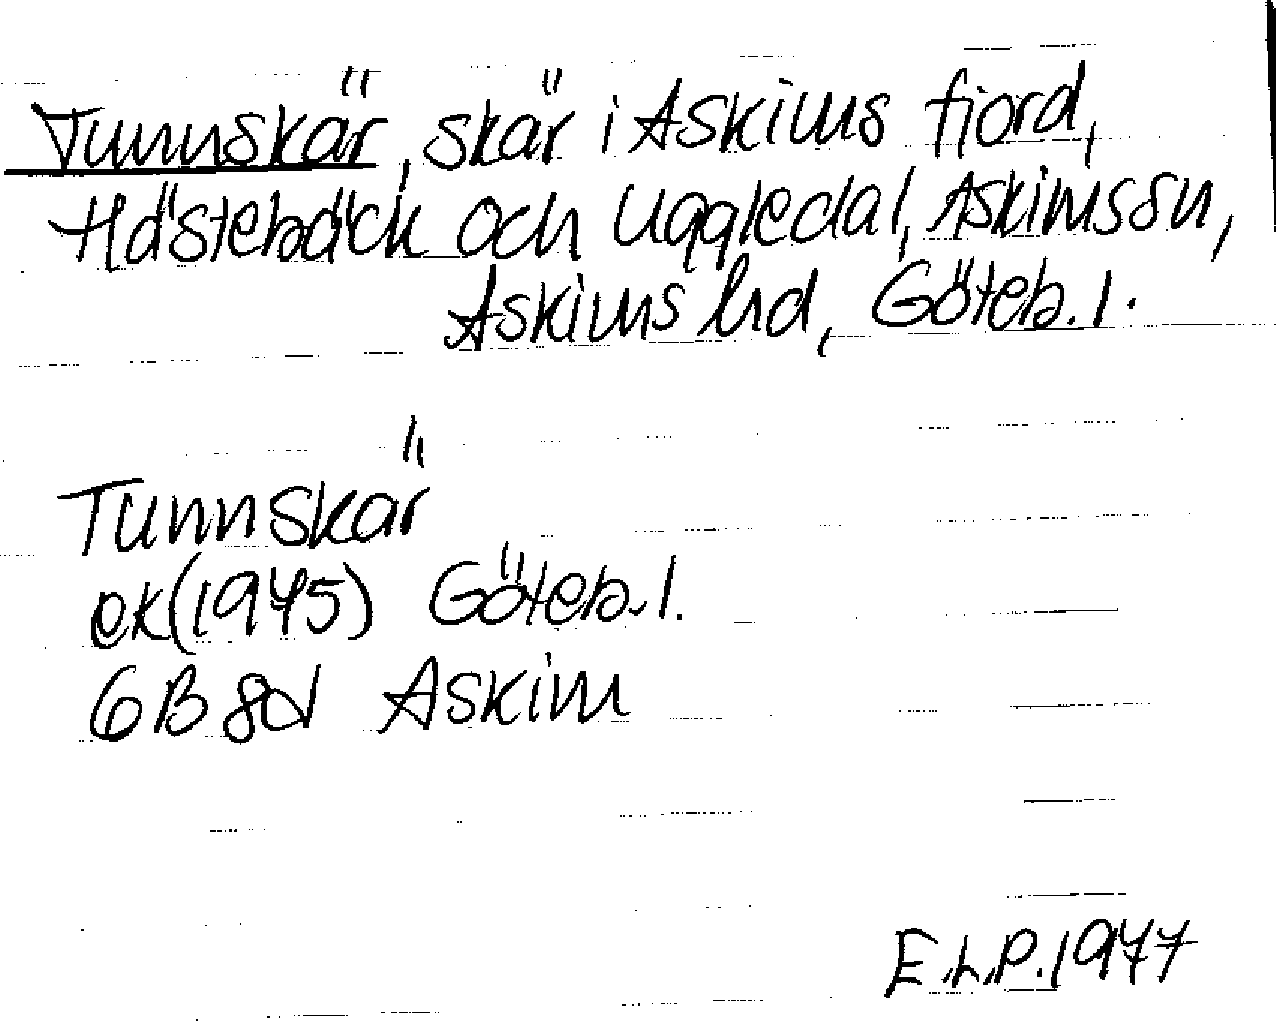 Tunnskär, skär i Askims fjord,
Hästebäck och Uggledal, Askims sn,
Askims hd, Göteb. l.
Tunnskär
ek (1975) Göteb. l.
6B 8d Askim
E.L.P. 1977